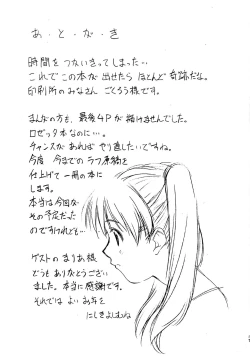 あ・と・が・き
時間をつないきってしまった…
これでこの本が出せたらほとんど奇跡だな。
印刷所のみなさん ごくろう様です。
まんがの方も、最後4Pが描けませんでした。
ロゼッタ本なのに…。
チャンスがあればやり直したいですね。
今度 今までのラフ原稿を
仕上げて一冊の本に
します。
本当は今回が
その予定だった
のですけれども…
ゲストのまりあ様
でうもありがとうござい
ました。本当に感謝です。
それでは よいお年を
にしきよしむね